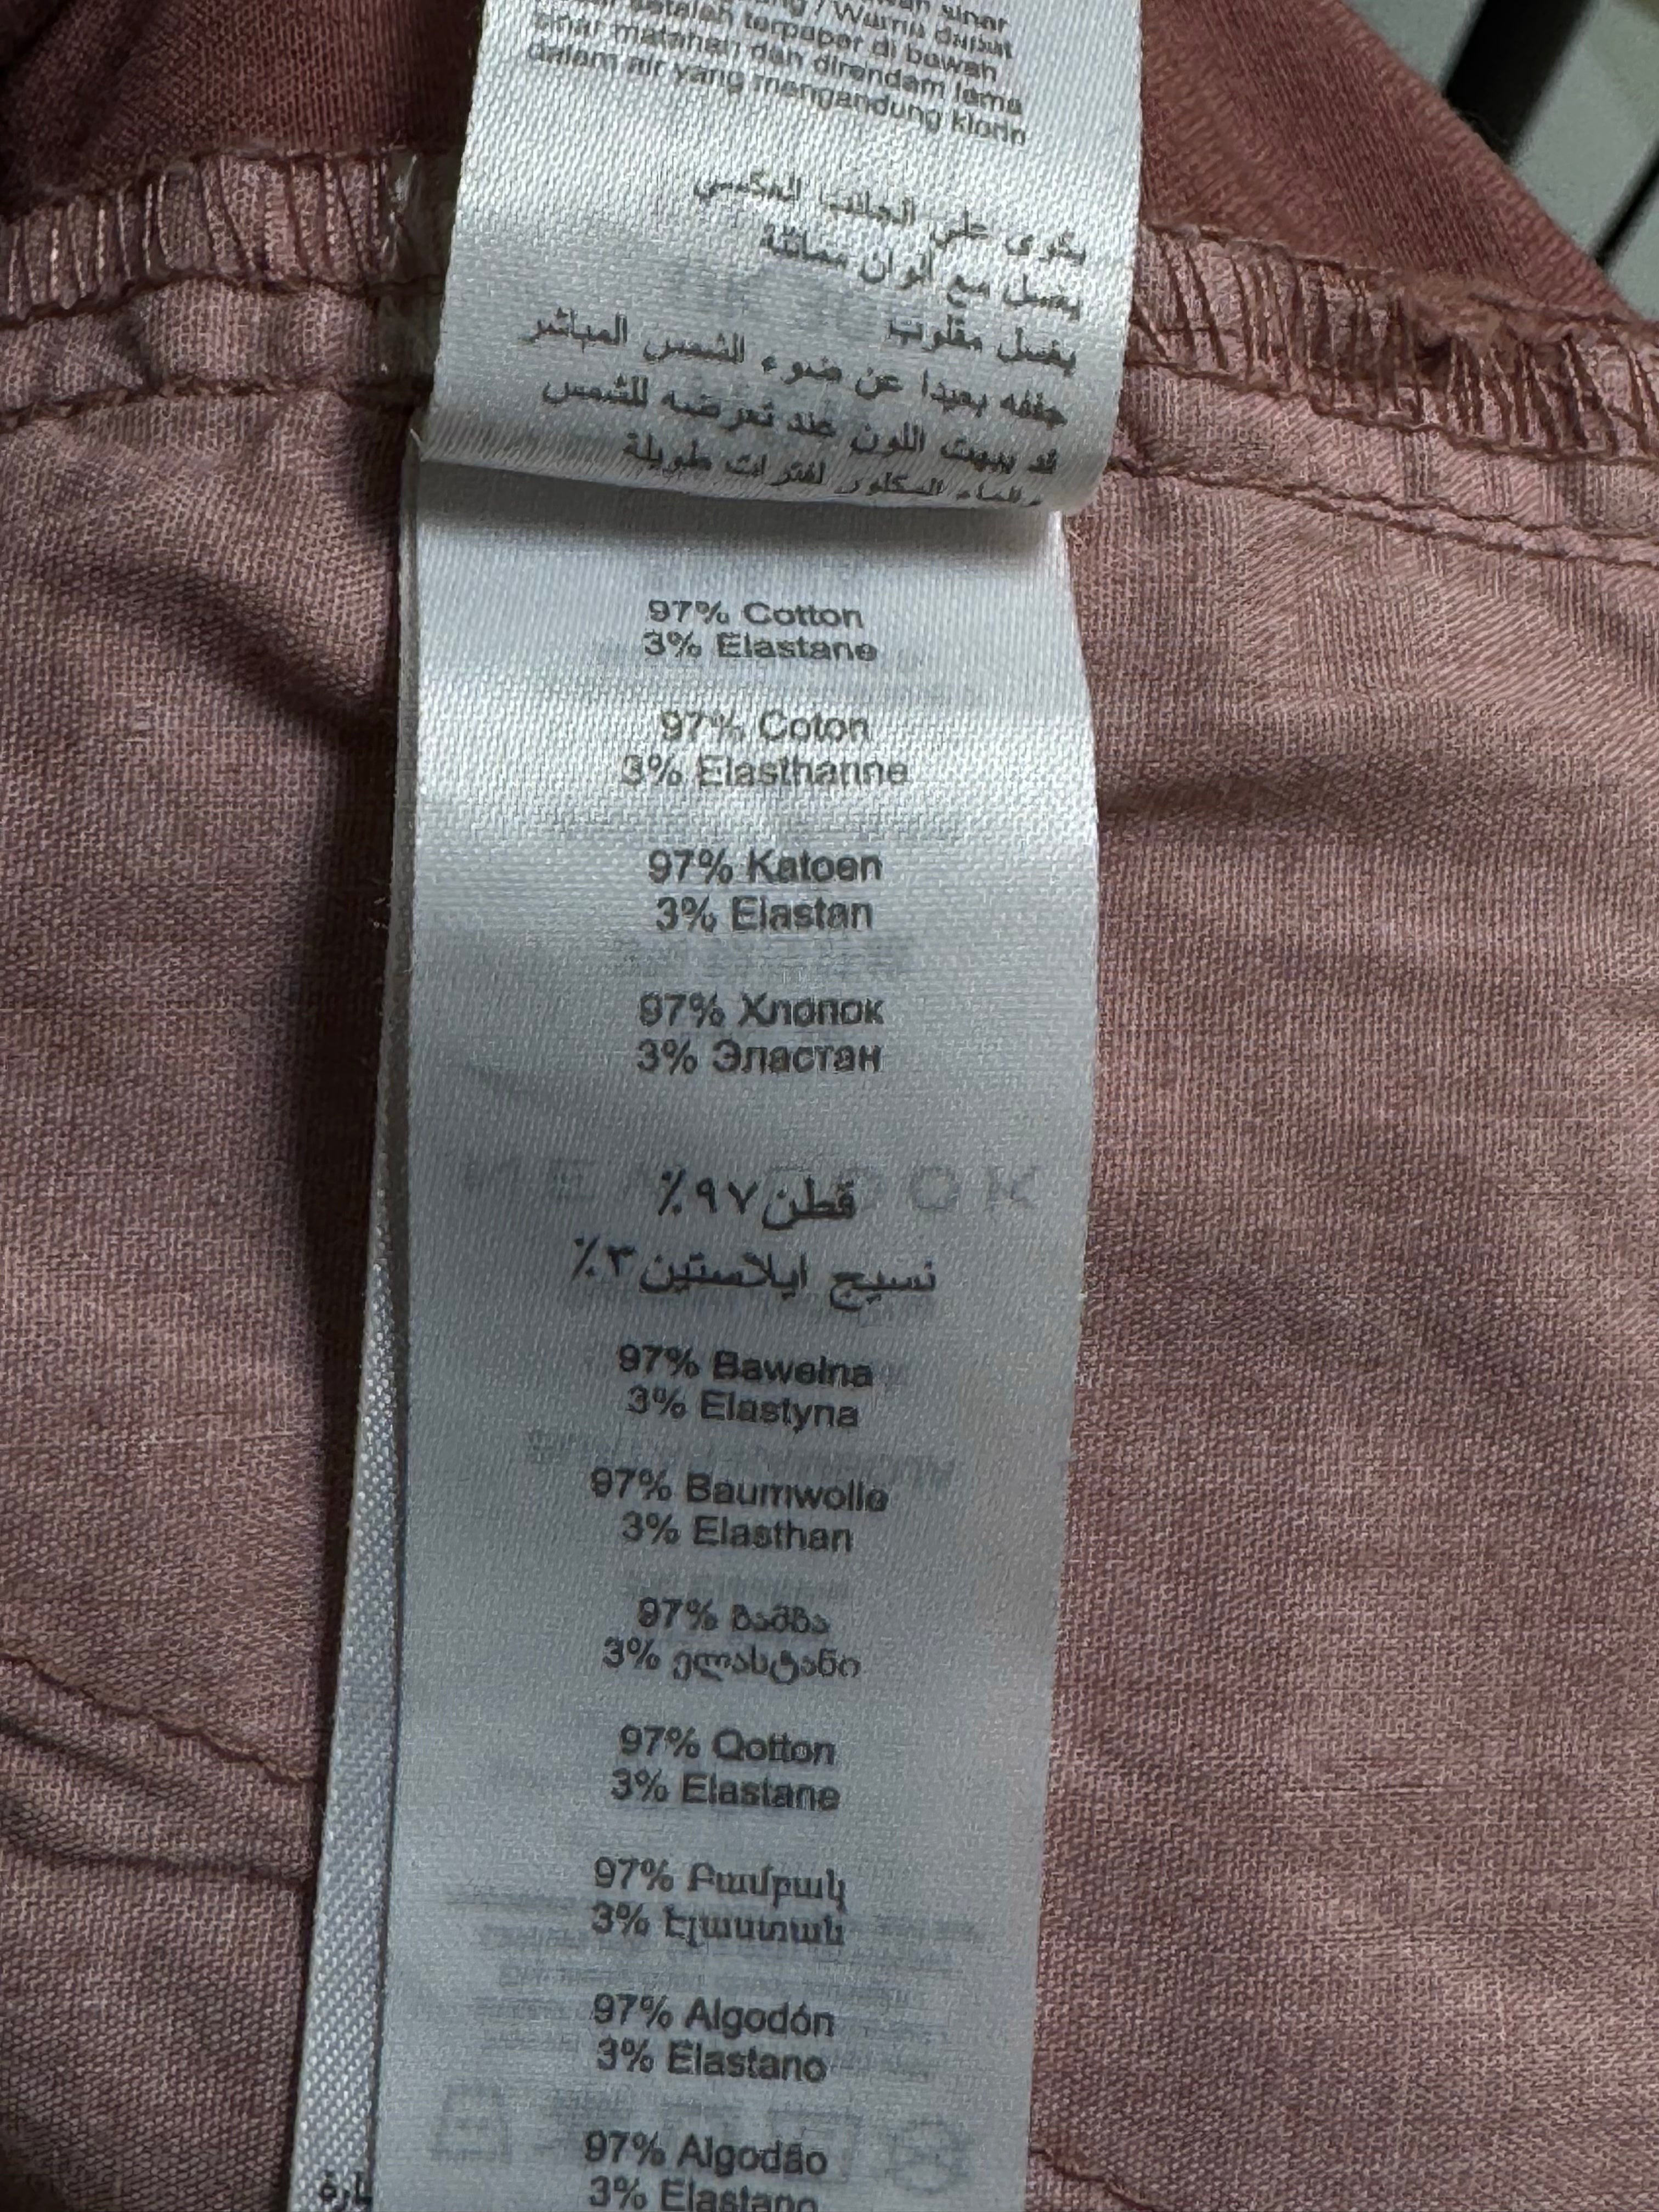 sinar
/ Warna dapat
setelah terpapar di bawah
sinar matahari dan direndam lama
dalam air yang mengandung klorin
يكوى على الجانب العكسي
يغسل مع ألوان مماثلة
يغسل مقلوب
جففه بعيدا عن ضوء الشمس المباشر
قد يبهت اللون عند تعرضه للشمس
لفترات طويلة
97% Cotton
3% Elastane
97% Coton
3% Elasthanne
97% Katoen
3% Elastan
97% Хлопок
3% Эластан
قطن ٩٧٪
نسيج ايلاستين ٣٪
97% Bawełna
3% Elastyna
97% Baumwolle
3% Elasthan
97% ბამბა
3% ელასტანი
97% Qotton
3% Elastane
97% Բամբակ
3% Էլաստան
97% Algodón
3% Elastano
97% Algodão
3% Elastano